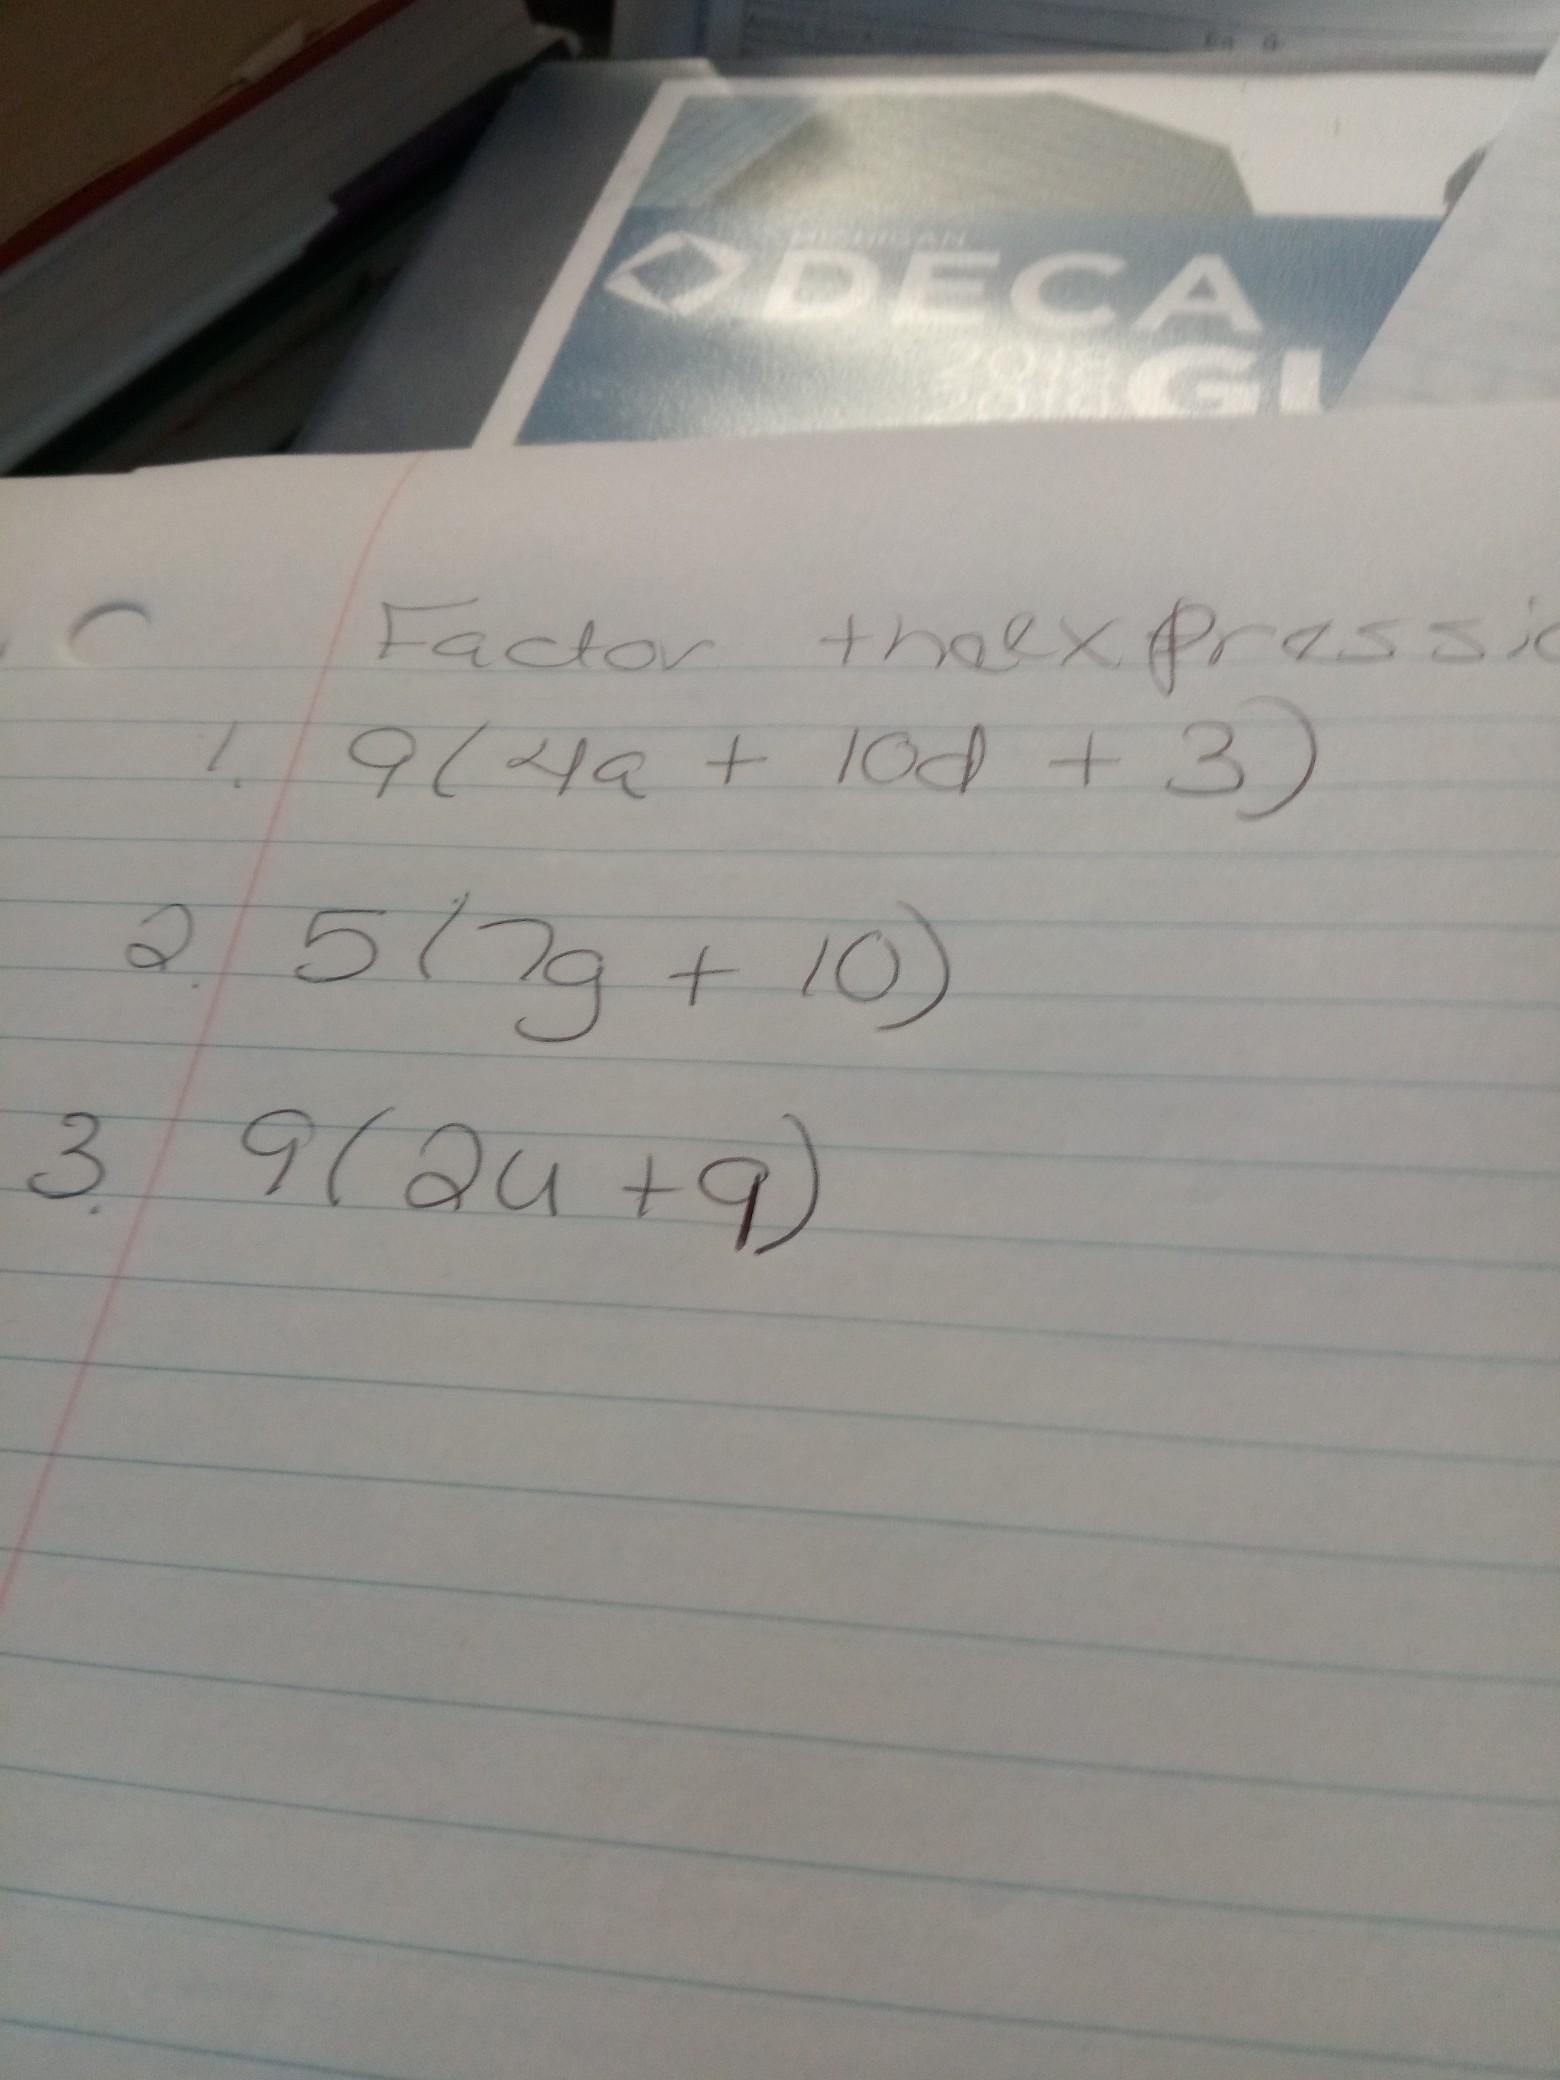 MICHIGAN
DECA
2018
GU
Factor the expressio
1. 9(4a + 10d + 3)
2. 5(7g + 10)
3. 9(2u + 9)